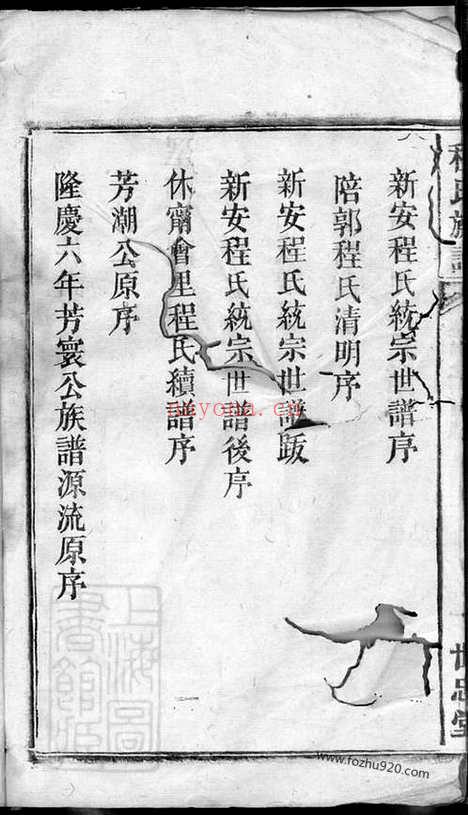 新安程氏統宗世譜序
陪郭程氏清明序
新安程氏統宗世譜跋
新安程氏統宗世譜後序
休甯會里程氏續譜序
芳潮公原序
隆慶六年芳寰公族譜源流原序
程氏族譜
世忠堂
上海圖書館藏
nayona.cn
www.fozhu920.com